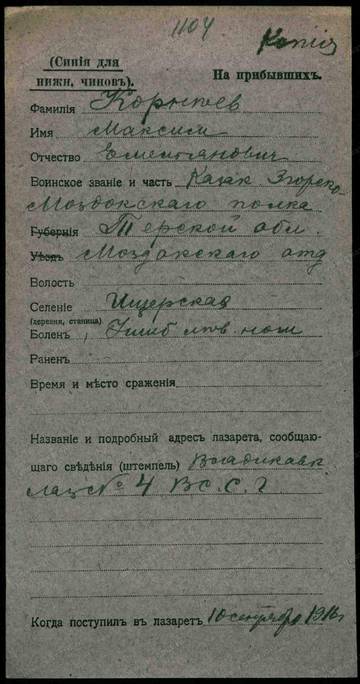 1104
Копія
(Синія для
нижн. чиновъ).
На прибывшихъ.
Фамилія
Имя Максим
Отчество Емельянович
Воинское званіе и часть Казак
Моздокскаго полка
Губернія Терской обл.
Уѣздъ Моздокскаго отд
Волость
Селеніе Ищерская
(деревня, станица)
Боленъ, Ушиб лев. ноги
Раненъ
Время и мѣсто сраженія
Названіе и подробный адресъ лазарета, сообщаю-
щаго свѣдѣнія (штемпель) Владикавк
лаз № 4 В С. С. Г
Когда поступилъ въ лазаретъ 10 сентября 1916 г